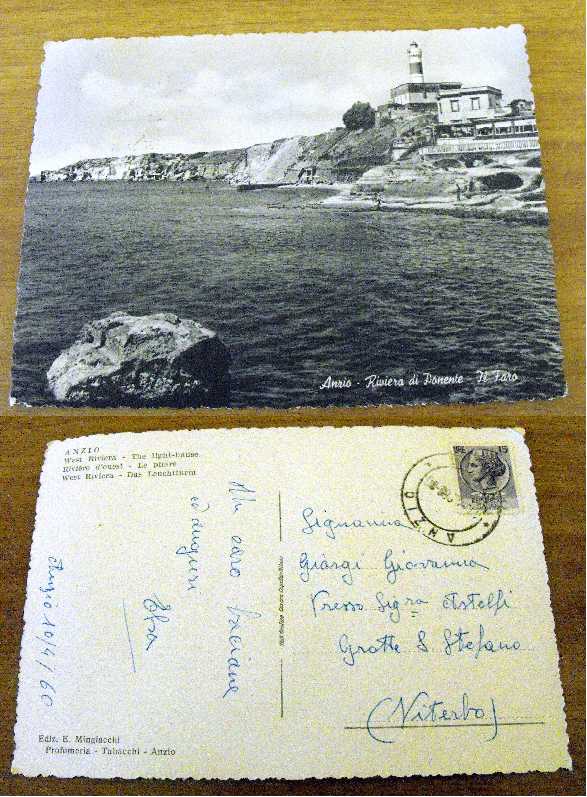 Anzio - Riviera di Ponente Il Faro
ANZIO
West Riviera - The light-house
Rivière d'ouest - Le phare
West Riviera - Das Leuchtturm
Un caro
ed auguri
Elsa
Anzio 10/4/60
Ediz. E. Mingiacchi
Profumeria - Tabacchi - Anzio
15
ANZIO
Signorina
Giorgi Giovanna
Presso Sig.ra Astolfi
Grotte S. Stefano
(Viterbo)